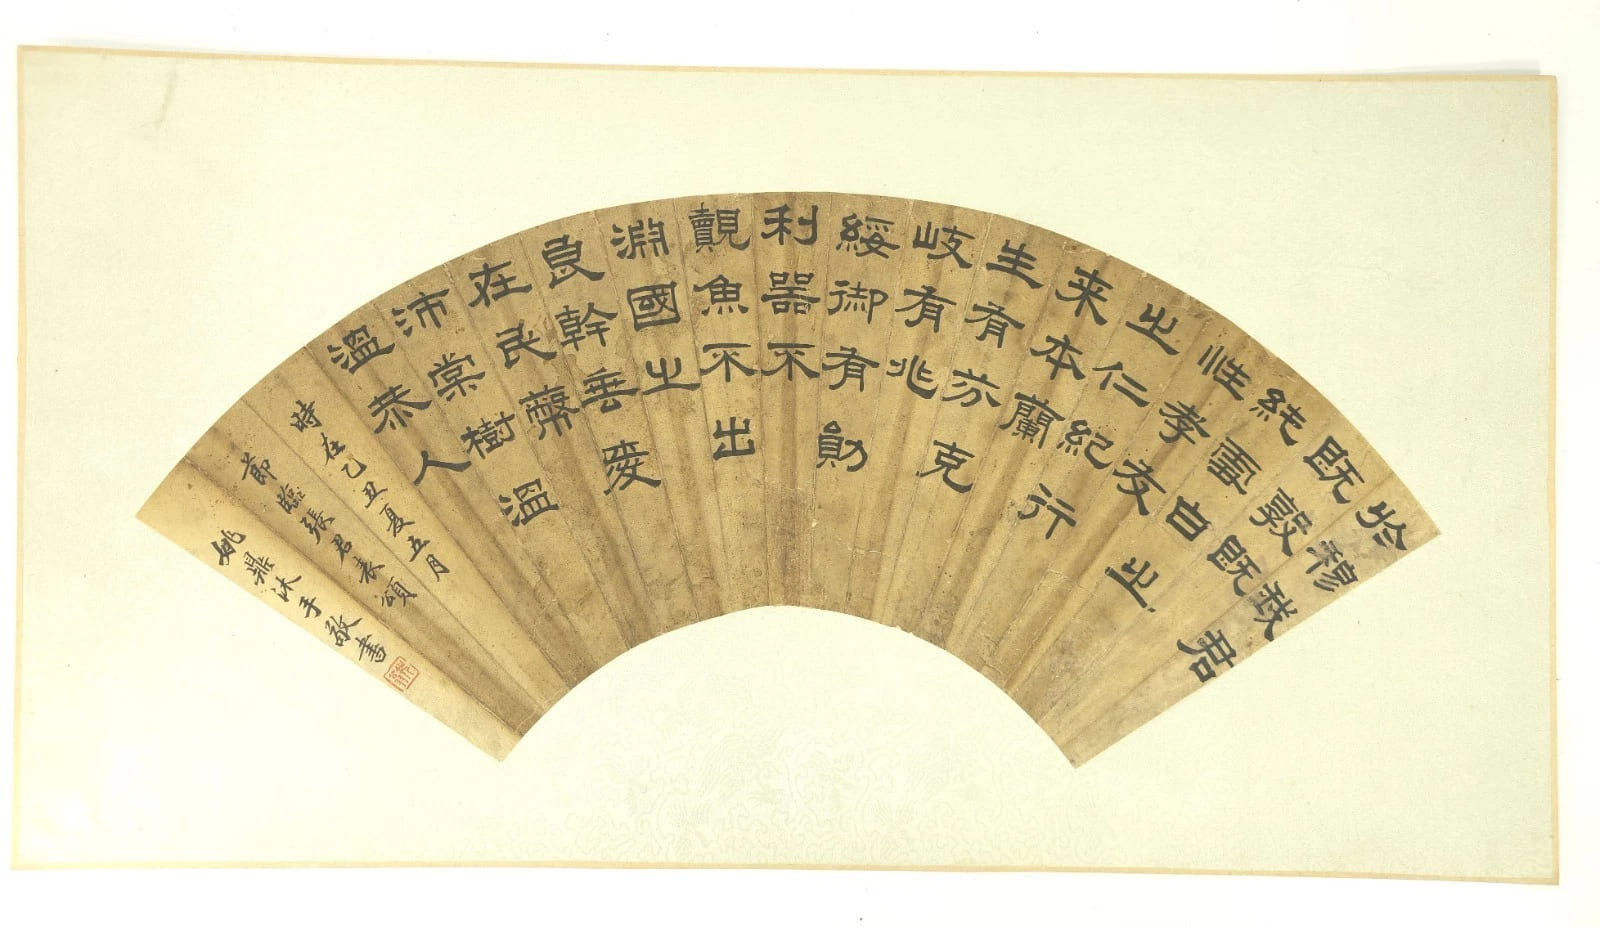 於穆我君
既敦既
純雪白之
性孝友
之仁紀行
来本蘭
生有芬克
岐有兆
綏御有勛
利器不
覿魚不出
淵國之
良幹垂愛
在民蔽
沛棠樹溫
溫恭人
時在乙丑夏五月
節臨張君表頌
姚鼎沐手敬書